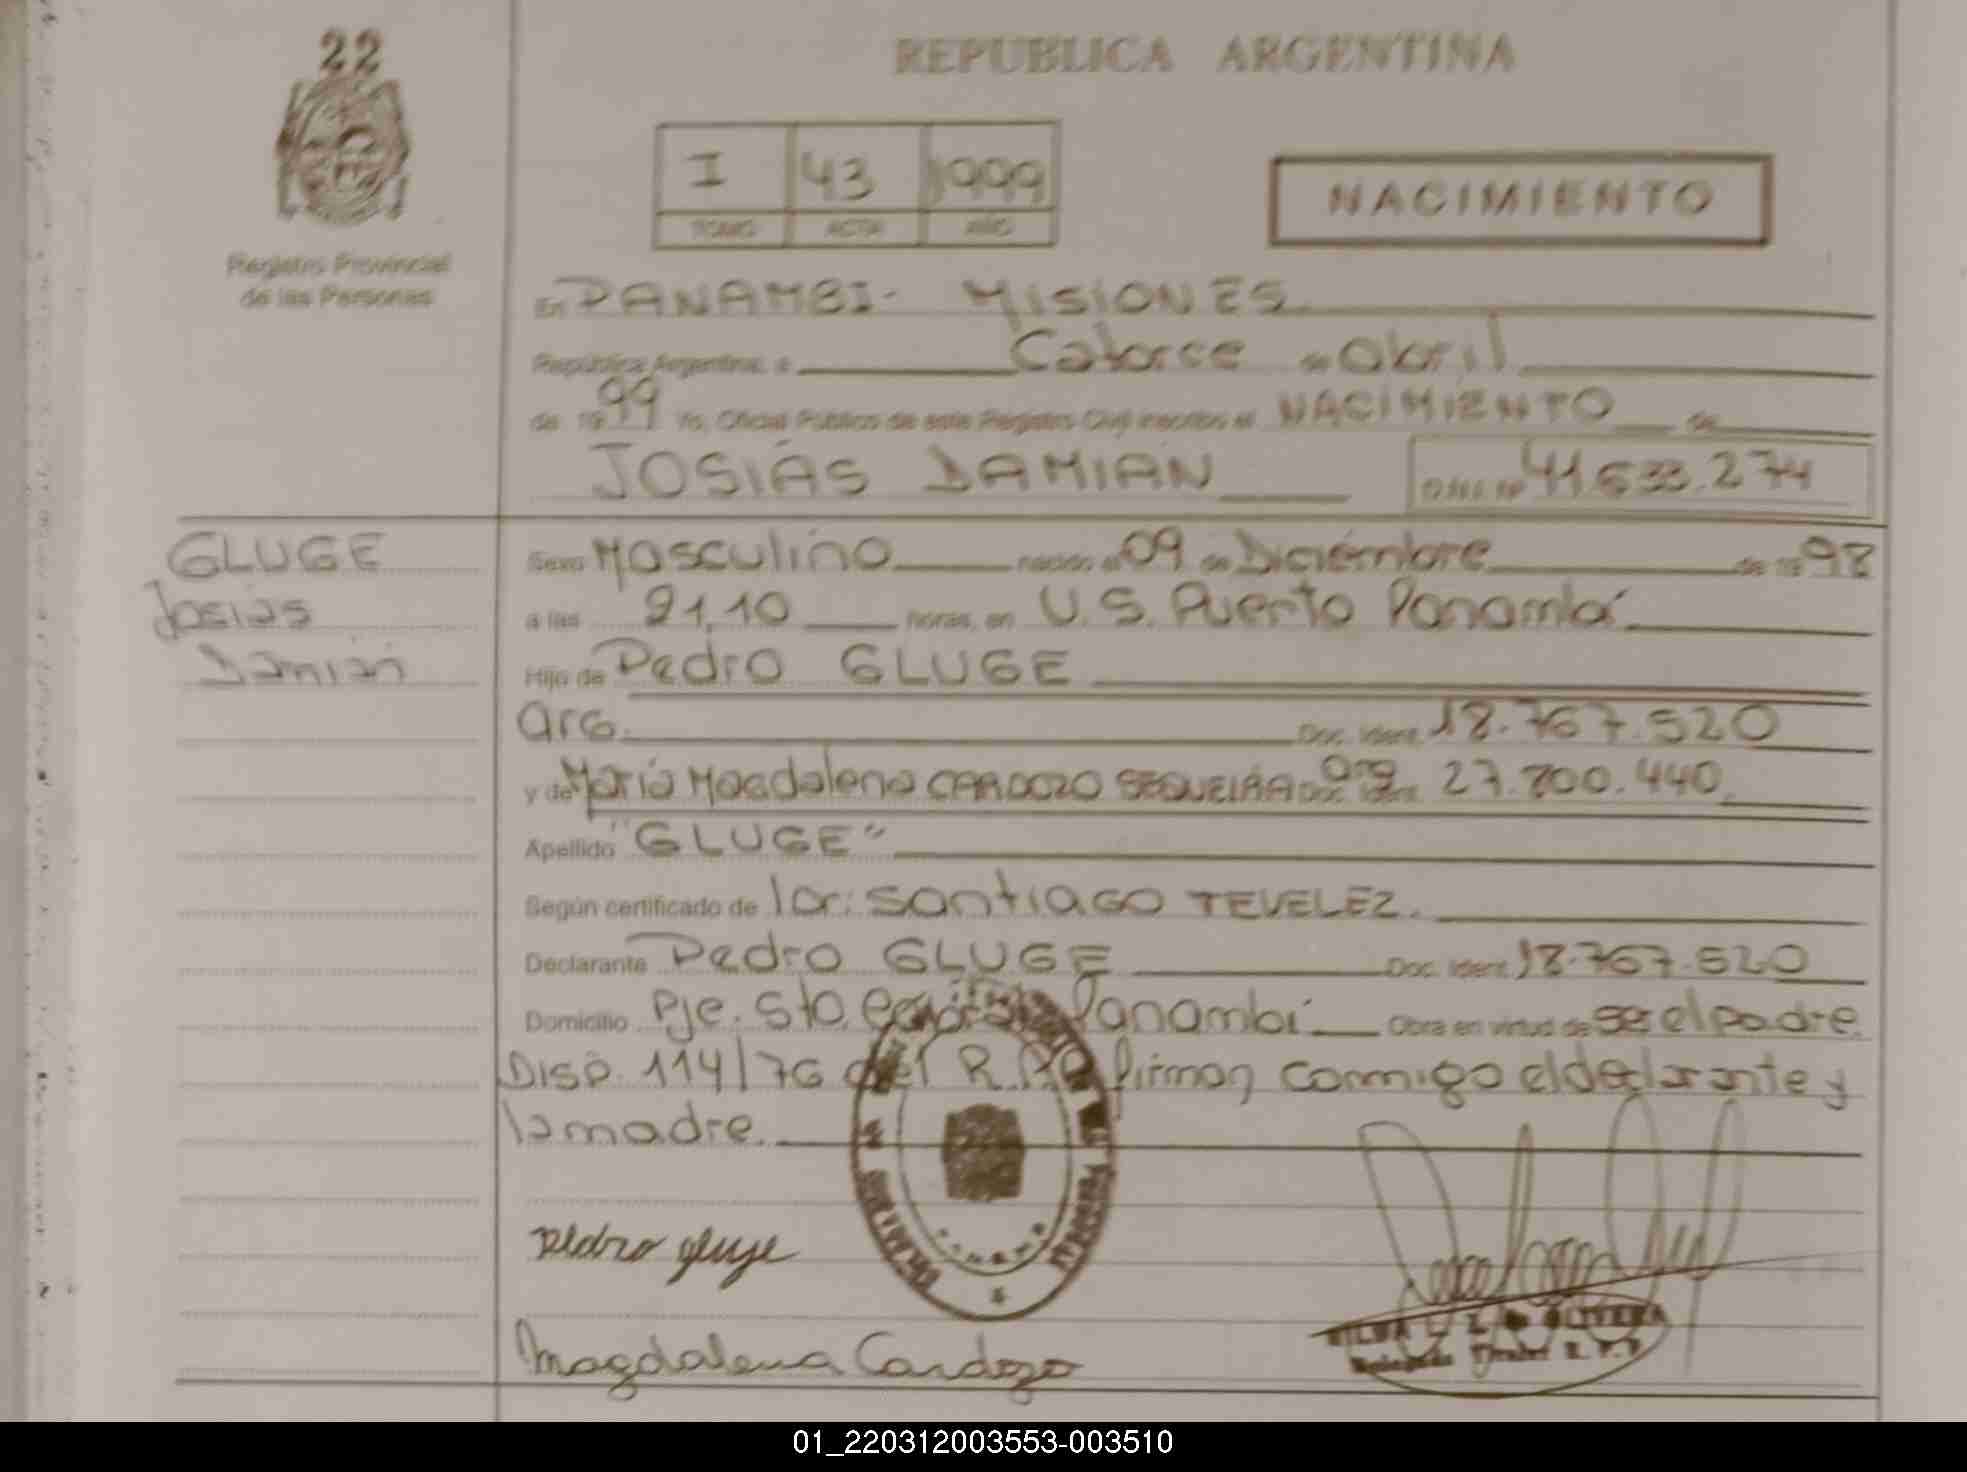 22
Registro Provincial
de las Personas
REPUBLICA ARGENTINA
I 43 1999
TOMO ACTA AÑO
NACIMIENTO
En PANAMBI - MISIONES
República Argentina, a Catorce de Abril
de 1999 Yo, Oficial Público de este Registro Civil inscribo el NACIMIENTO de
JOSIÁS DAMIAN D.N.I. Nº 41.633.274
GLUGE
Josias
Damian
Sexo Masculino nacido el 09 de Diciembre de 1998
a las 21,10 horas, en U.S. Puerto Panambí
Hijo de Pedro GLUGE
Arg. Doc. Ident. 18.767.520
y de María Magdalena CARDOZO SEQUEIRA Arg Doc. Ident. 27.800.440
Apellido "GLUGE"
Según certificado de Santiago TEVELEZ.
Declarante Pedro GLUGE Doc. Ident. 18.767.520
Domicilio Pje. Sto. Panambí Obra en virtud de ser el padre.
Disp. 114/76 del firman conmigo el declarante y
la madre.
Pedro gluge
Magdalena Cardozo
DE OLIVEIRA
01_220312003553-003510